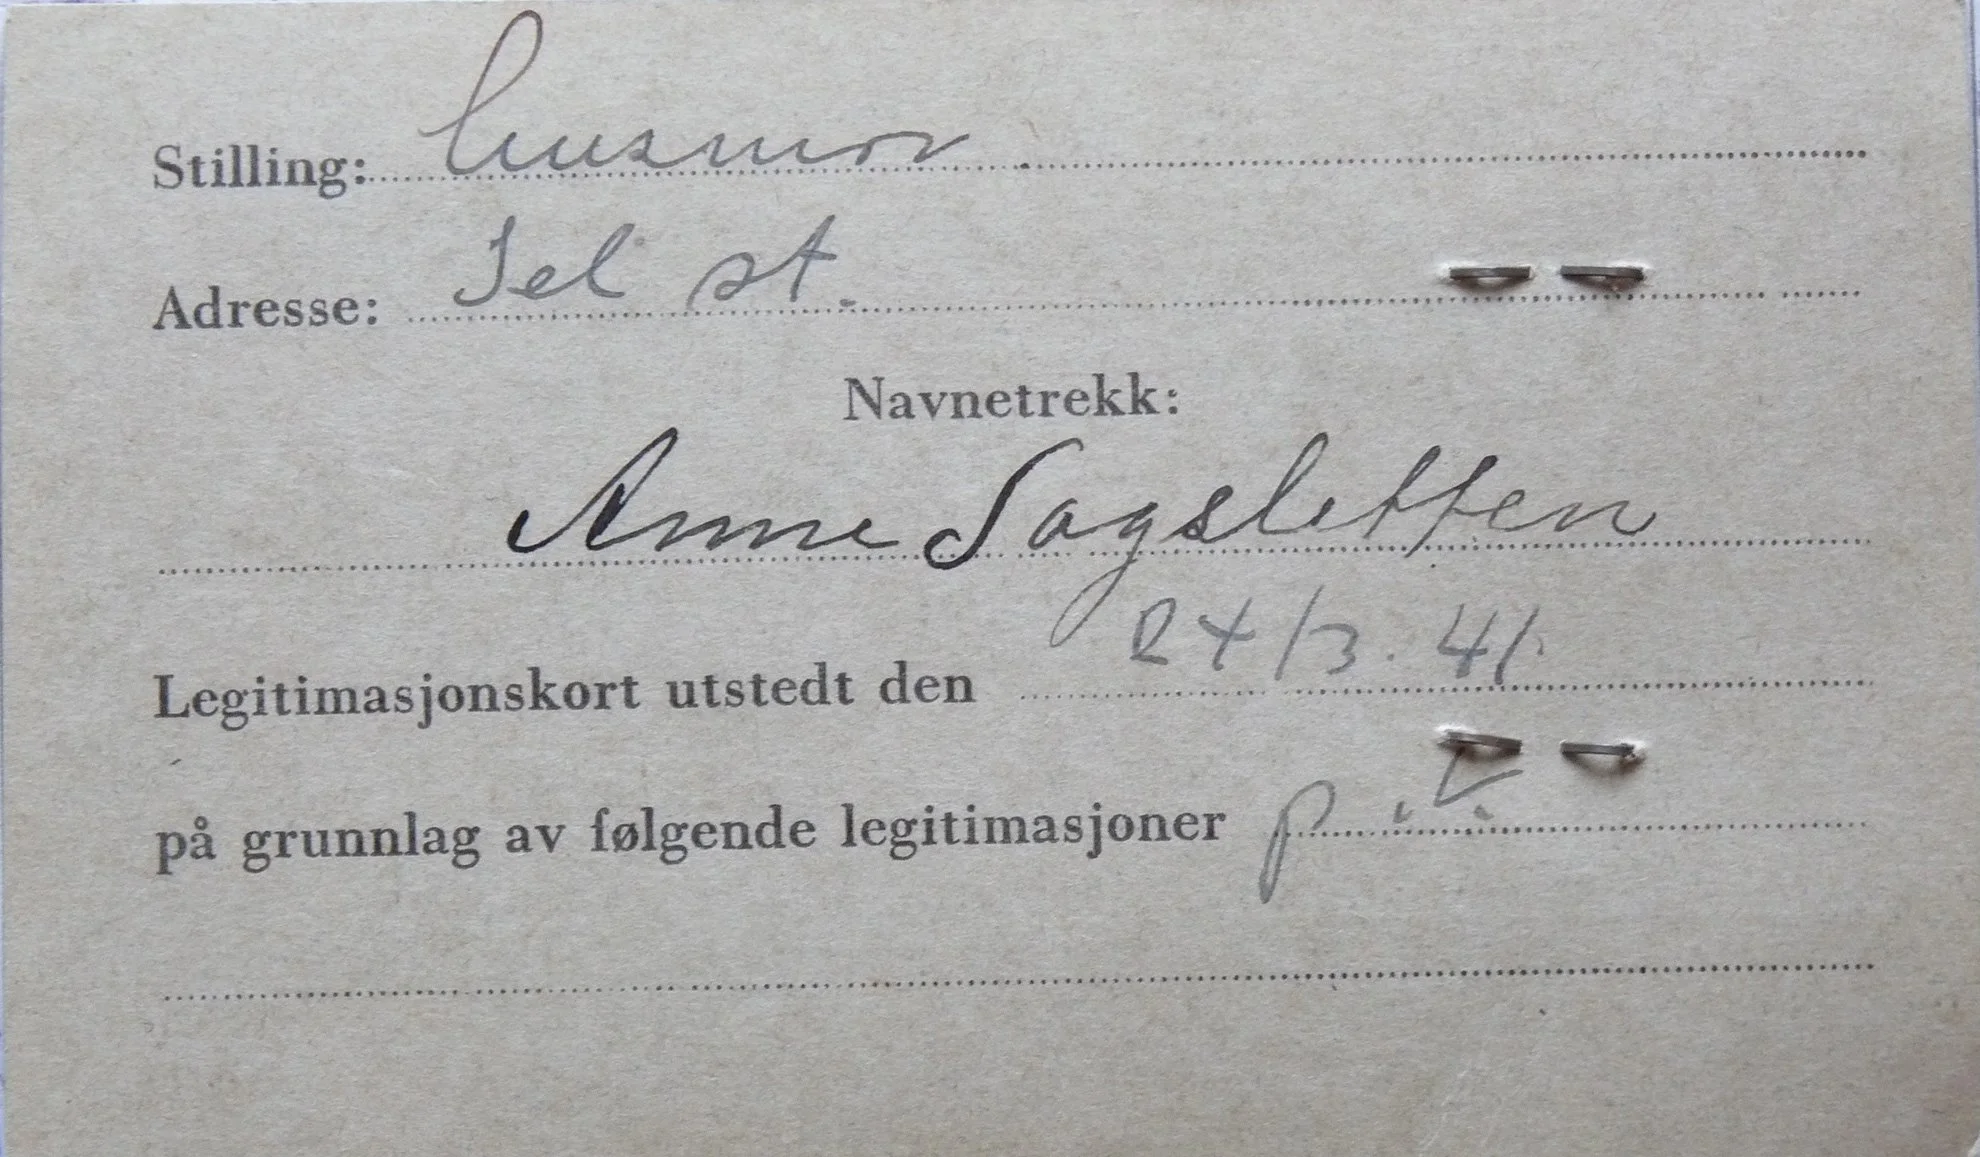 Stilling: husmor
Adresse: Jel st.
Navnetrekk:
Anne Sagsletten
Legitimasjonskort utstedt den 24/3. 41.
på grunnlag av følgende legitimasjoner p.